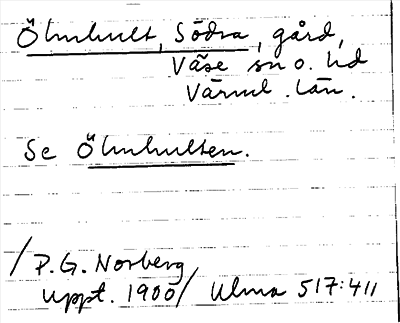 Ölmhult, Södra, gård,
Väse sn o. hd
Värml. län.
Se Ölmhulten.
/P.G. Norberg
uppt. 1900/ Ulma 517:411